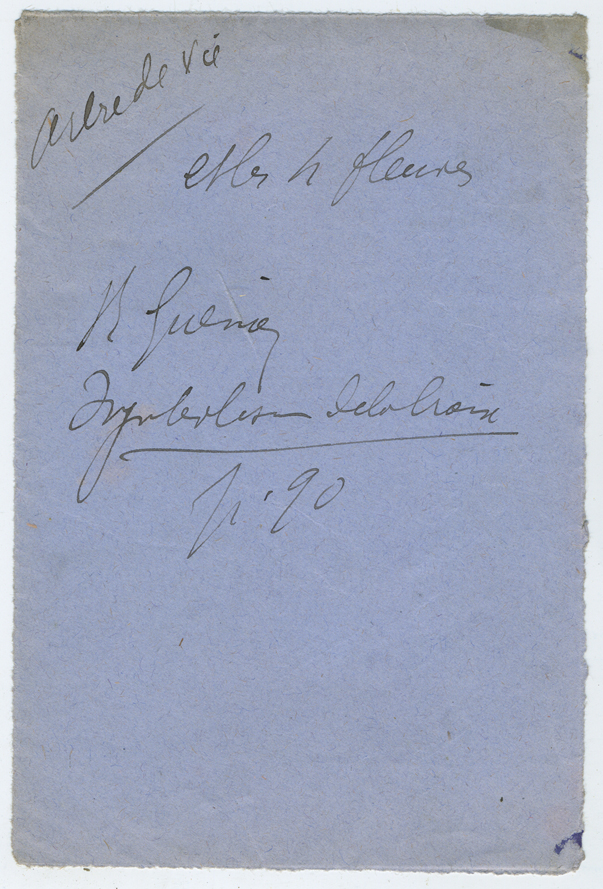 arbre de vie
et les 4 fleuves
R Guénon
Symbolisme de la Croix
p. 90